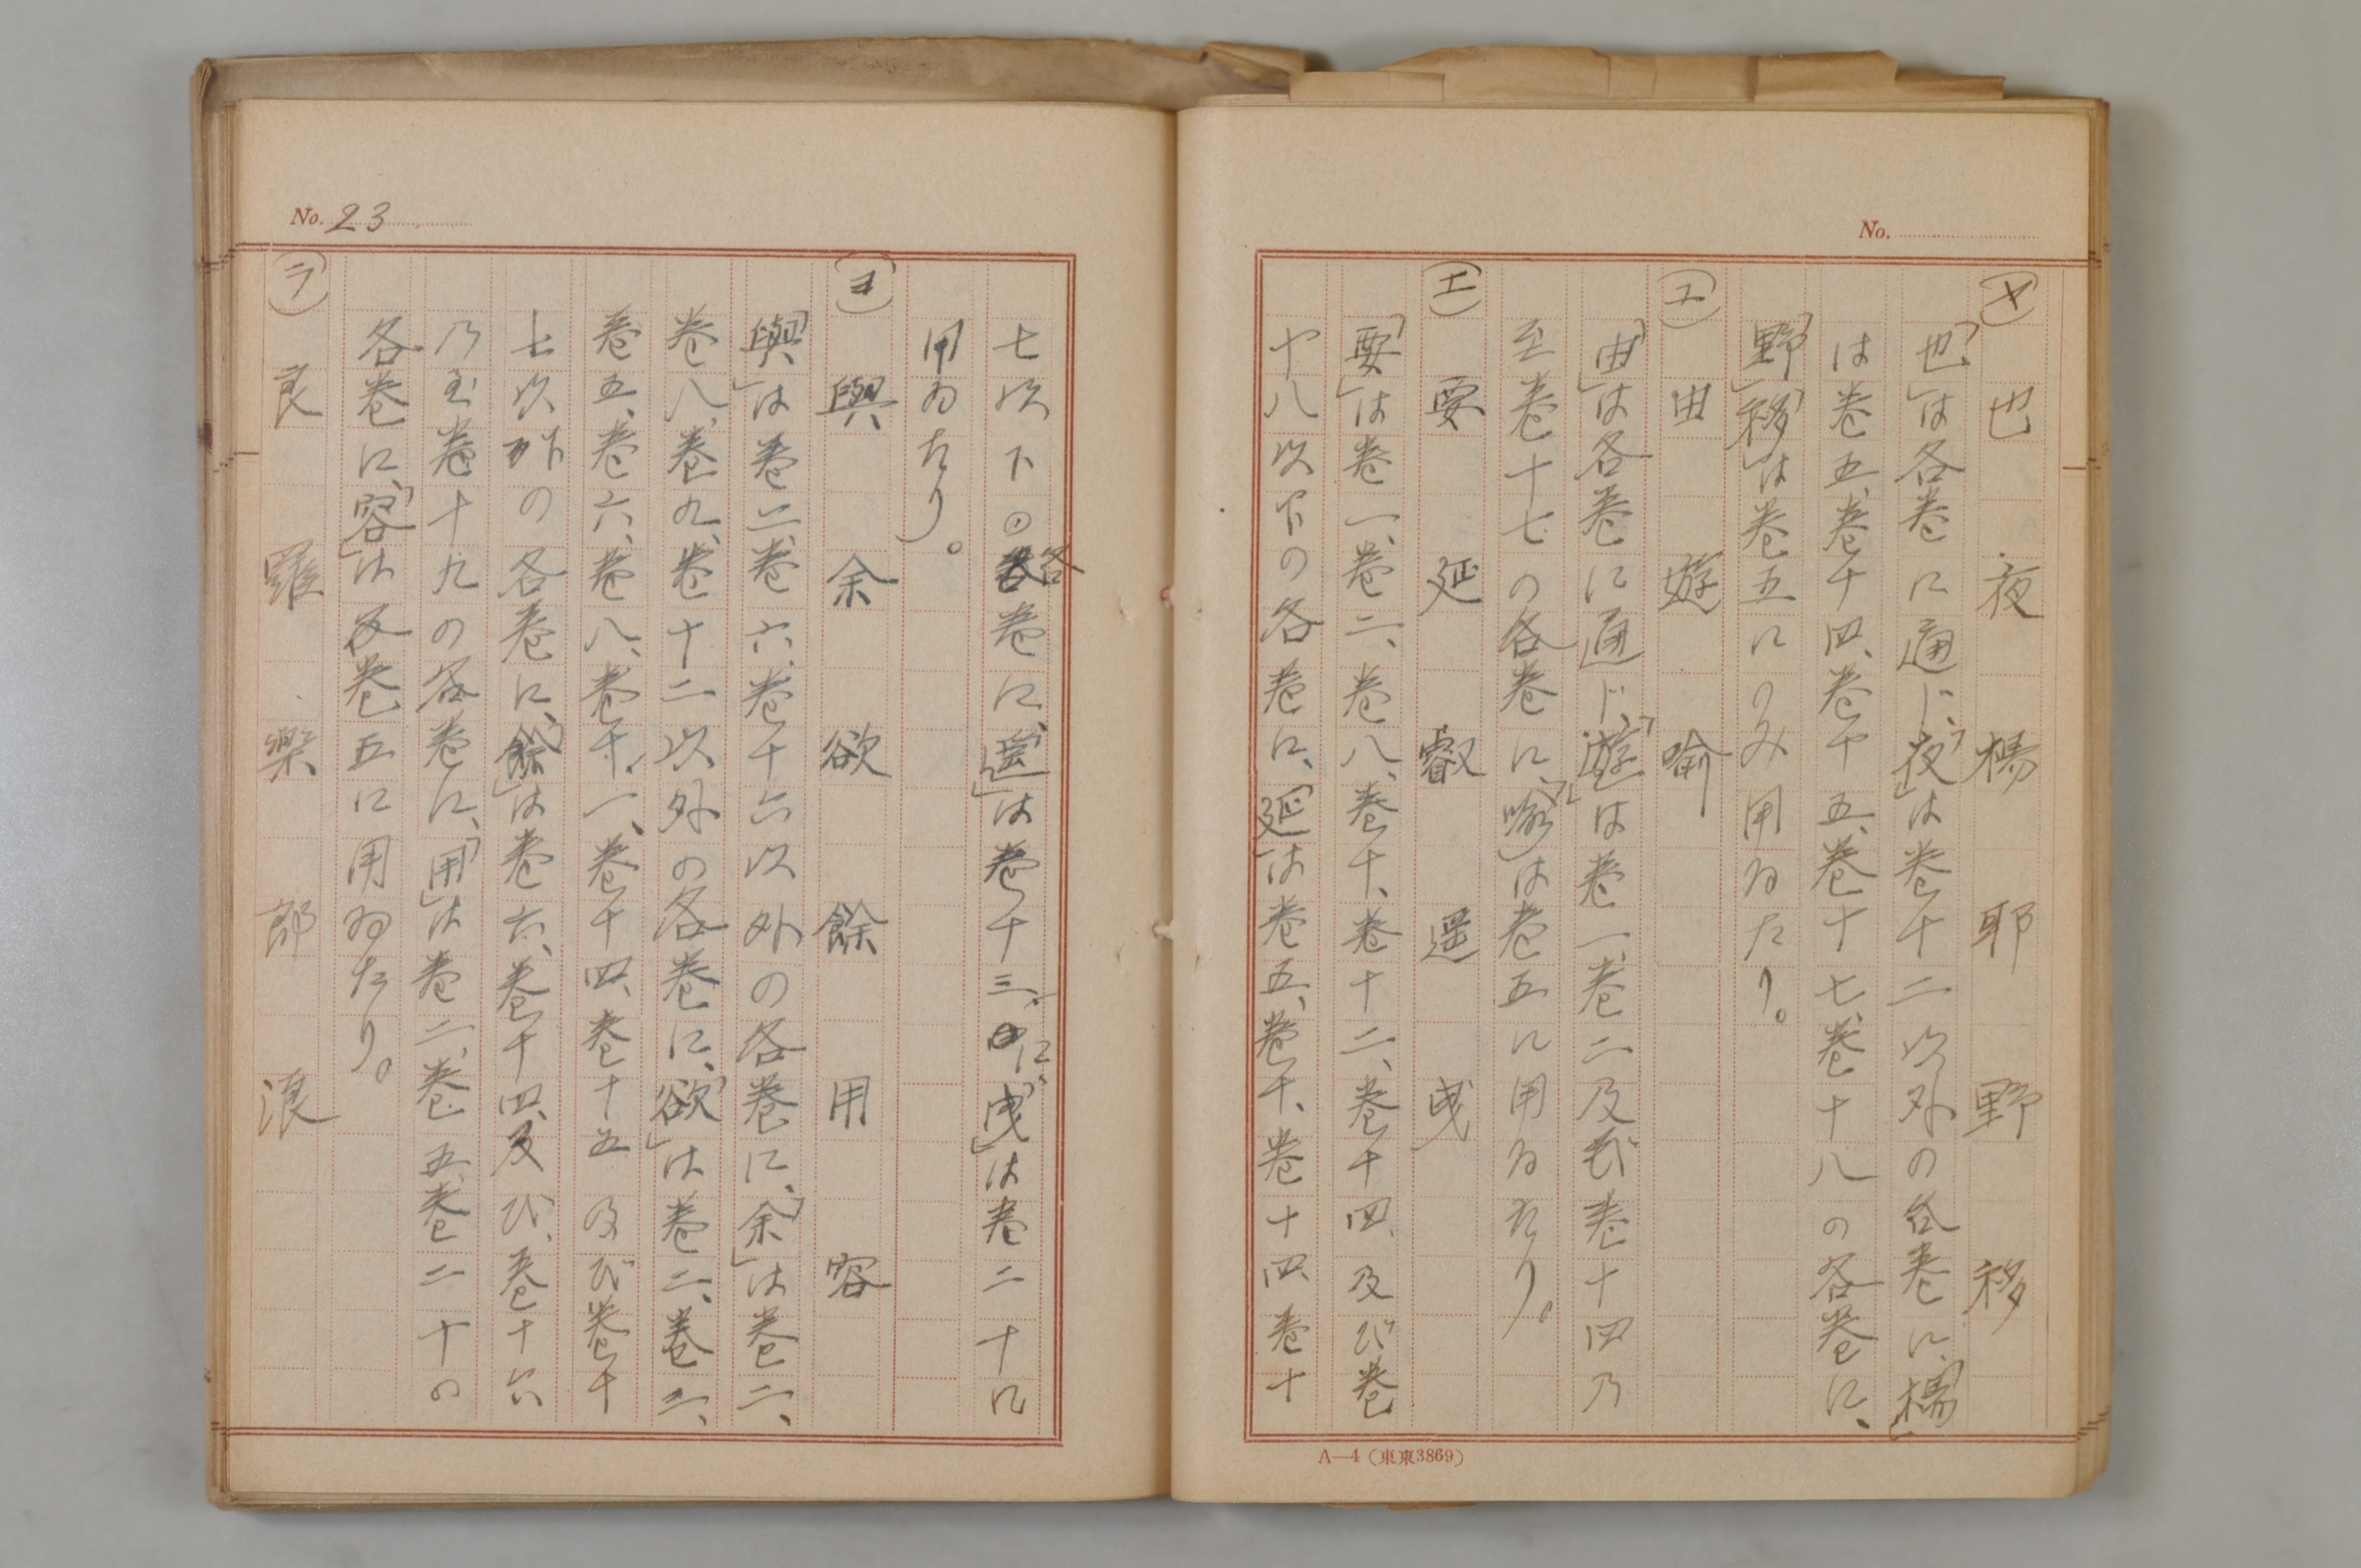 No.
(ヤ) 也 夜 楊 耶 野 移
「也」は各巻に通じ、「夜」は巻十二以外の各巻に、「楊」
は巻五、巻十四、巻十五、巻十七、巻十八の各巻に、
「野」「移」は巻五にのみ用ゐたり。
(ユ) 由 遊 喻
「由」は各巻に通じ、「遊」は巻一、巻二及び巻十四乃
至巻十七の各巻に、「喻」は巻五に用ゐたり。
(エ) 要 延 叡 遥 曳
「要」は巻一、巻二、巻八、巻十、巻十二、巻十四、及び巻
十八以下の各巻に、「延」は巻五、巻十、巻十四、巻十
A—4 (東東3869)
No. 23
七以下の各巻に、「遥」は巻十三に、「曳」は巻二十に
用ゐたり。
(ヨ) 與 余 欲 餘 用 容
「與」は巻二、巻六、巻十六以外の各巻に、「余」は巻二、
巻八、巻九、巻十二以外の各巻に、「欲」は巻二、巻三、
巻五、巻六、巻八、巻十一、巻十四、巻十五及び巻十
七以下の各巻に、「餘」は巻六、巻十四、及び、巻十六
乃至巻十九の各巻に、「用」は巻二、巻五、巻二十の
各巻に、「容」は巻五に用ゐたり。
(ラ) 良 羅 樂 郎 浪